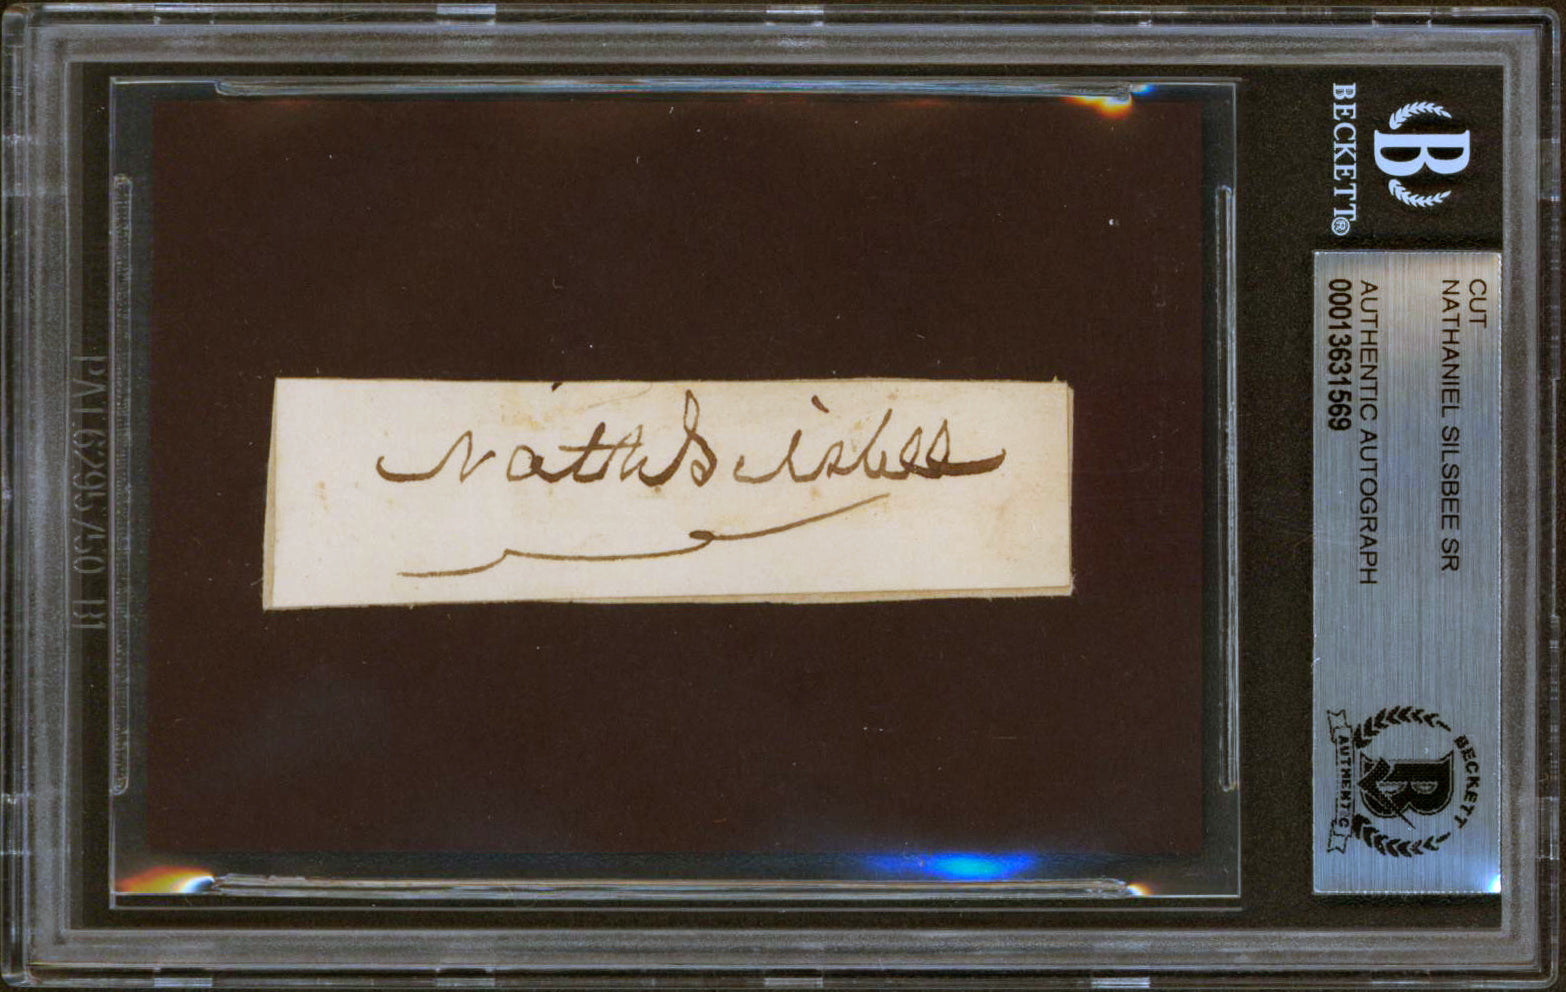 Nathl Silsbee
BECKETT®
CUT
NATHANIEL SILSBEE SR
AUTHENTIC AUTOGRAPH
00013631569
B
BECKETT
B
AUTHENTIC